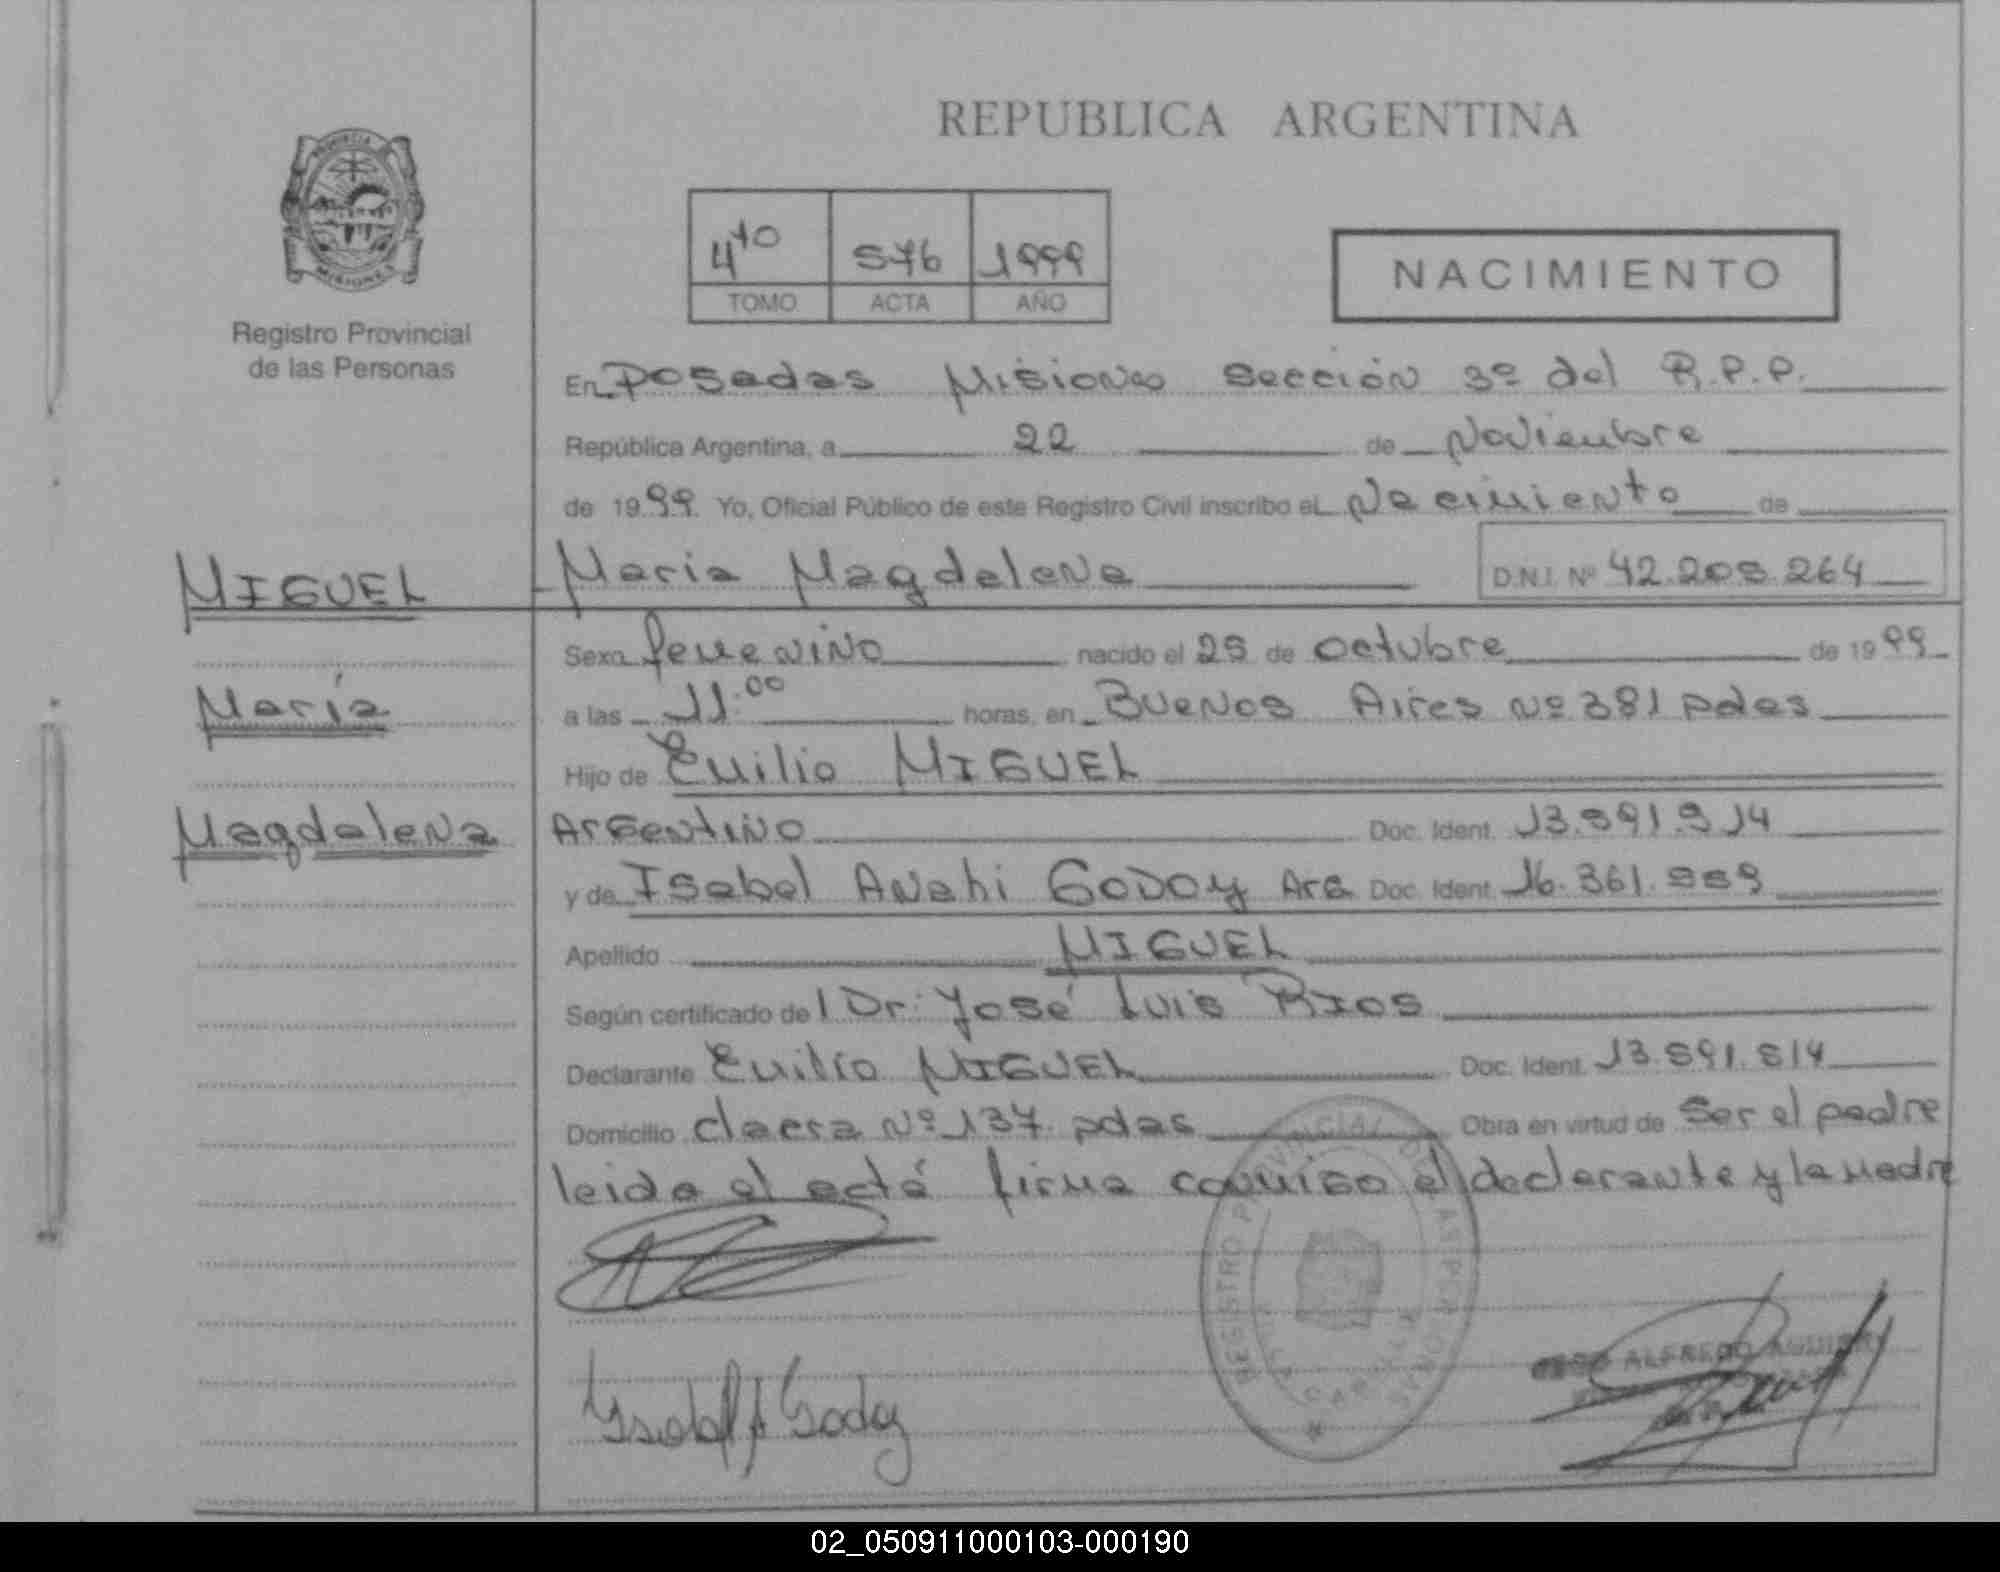 REPUBLICA ARGENTINA
PROVINCIA
MISIONES
Registro Provincial
de las Personas
4to 576 1999
TOMO ACTA AÑO
NACIMIENTO
En Posadas Misiones Sección 3º del R.P.P.
República Argentina, a 22 de Noviembre
de 1999. Yo, Oficial Público de este Registro Civil inscribo el Nacimiento de
MIGUEL
María
Magdalena
Maria Magdalena D.N.I. Nº 42.205.264
Sexo femenino nacido el 25 de octubre de 1999
a las 11.00 horas, en Buenos Aires Nº 381 pdas
Hijo de Emilio MIGUEL
Argentino Doc. Ident. 13.591.514
y de Isabel Anahi GODOY Arg Doc. Ident. 16.361.559
Apellido MIGUEL
Según certificado del Dr. José Luis RIOS
Declarante Emilio MIGUEL Doc. Ident. 13.591.514
Domicilio claera Nº 137 pdas Obra en virtud de Ser el padre
leida el acta firma conmigo el declarante y la madre
REGISTRO PROVINCIAL DE LAS PERSONAS
Godoy
ALFREDO
02_050911000103-000190